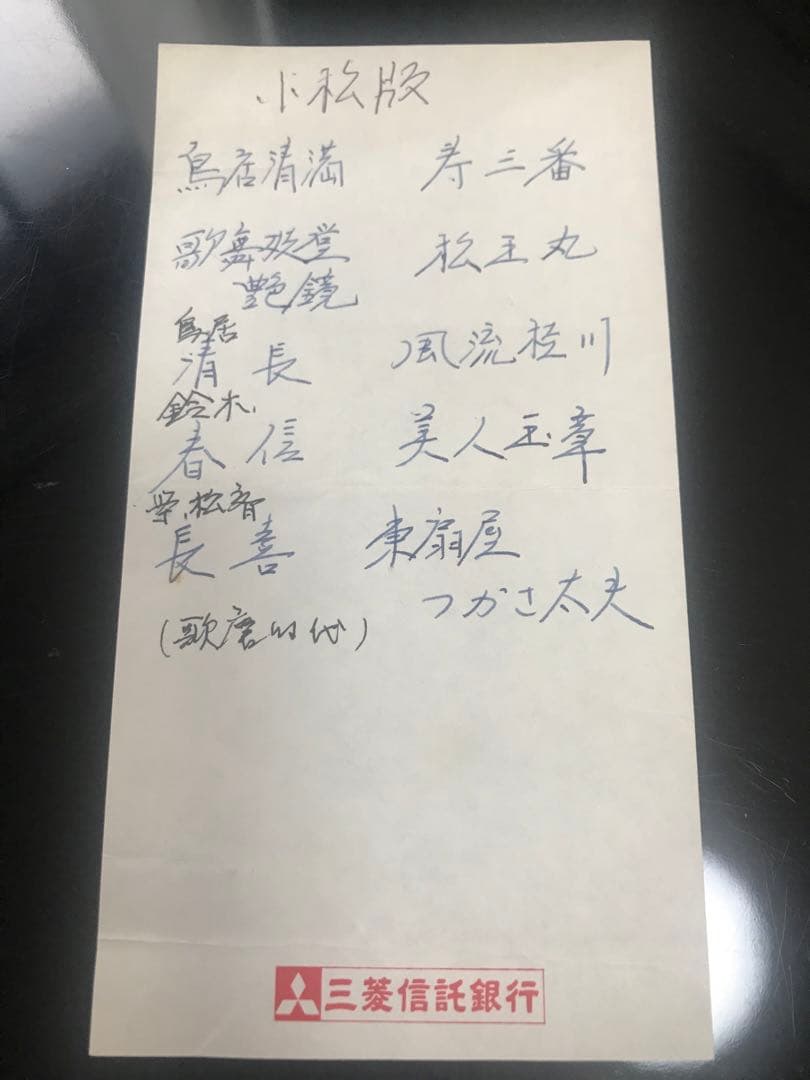 小松版
鳥居清満　寿三番
歌舞妓堂　松王丸
艶鏡
鳥居
清長　風流桂川
鈴木
春信　美人玉章
栄松斎
長喜　東扇屋
つかさ太夫
(歌麿時代)
三菱信託銀行